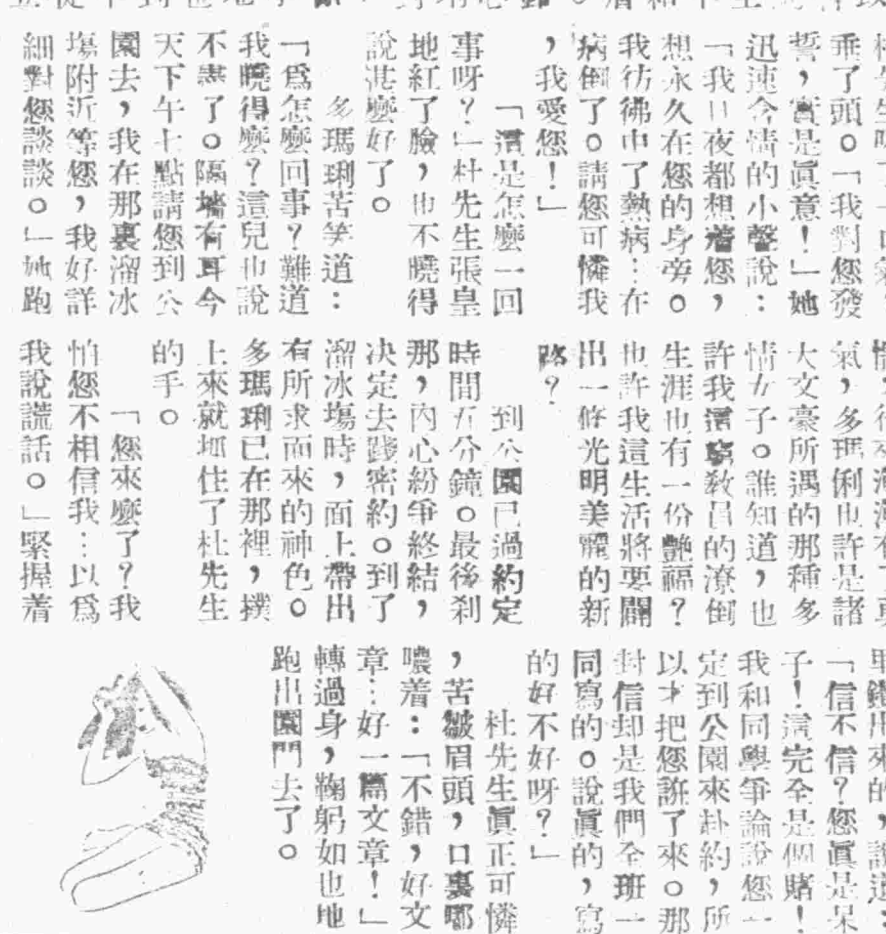 垂了頭。「我對您發
誓，實是眞意！」她
迅速含情的小聲說：
「我日夜都想着您，
想永久在您的身旁。
我彷彿中了熱病…在
病倒了。請您可憐我
，我愛您！」
「這是怎麼一回
事呀？」杜先生張皇
地紅了臉，也不曉得
說甚麼好了。
多瑪琍苦笑道：
「爲怎麼回事？難道
我曉得麼？這兒也說
不盡了。隔墻有耳今
天下午七點請您到公
園去，我在那裏溜冰
塲附近等您，我好詳
細對您談談。」她跑
氣，多瑪俐也許是諸
大文豪所遇的那種多
情女子。誰知道，也
許我這窮敎員的潦倒
生涯也有一份艷福？
也許我這生活將要闢
出一條光明美麗的新
路？
到公園已過約定
時間五分鐘。最後刹
那，內心紛爭終結，
决定去踐密約。到了
溜冰塲時，面上帶出
有所求而來的神色。
多瑪琍已在那裡，撲
上來就抓住了杜先生
的手。
「您來麼了？我
怕您不相信我…以爲
我說謊話。」緊握着
「信不信？您眞是呆
子！這完全是個賭！
我和同學爭論說您一
定到公園來赴約，所
以才把您誆了來。那
封信却是我們全班一
同寫的。說眞的，寫
的好不好呀？」
杜先生眞正可憐
，苦皺眉頭，口裏嘟
噥着：「不錯，好文
章…好一篇文章！」
轉過身，鞠躬如也地
跑出園門去了。